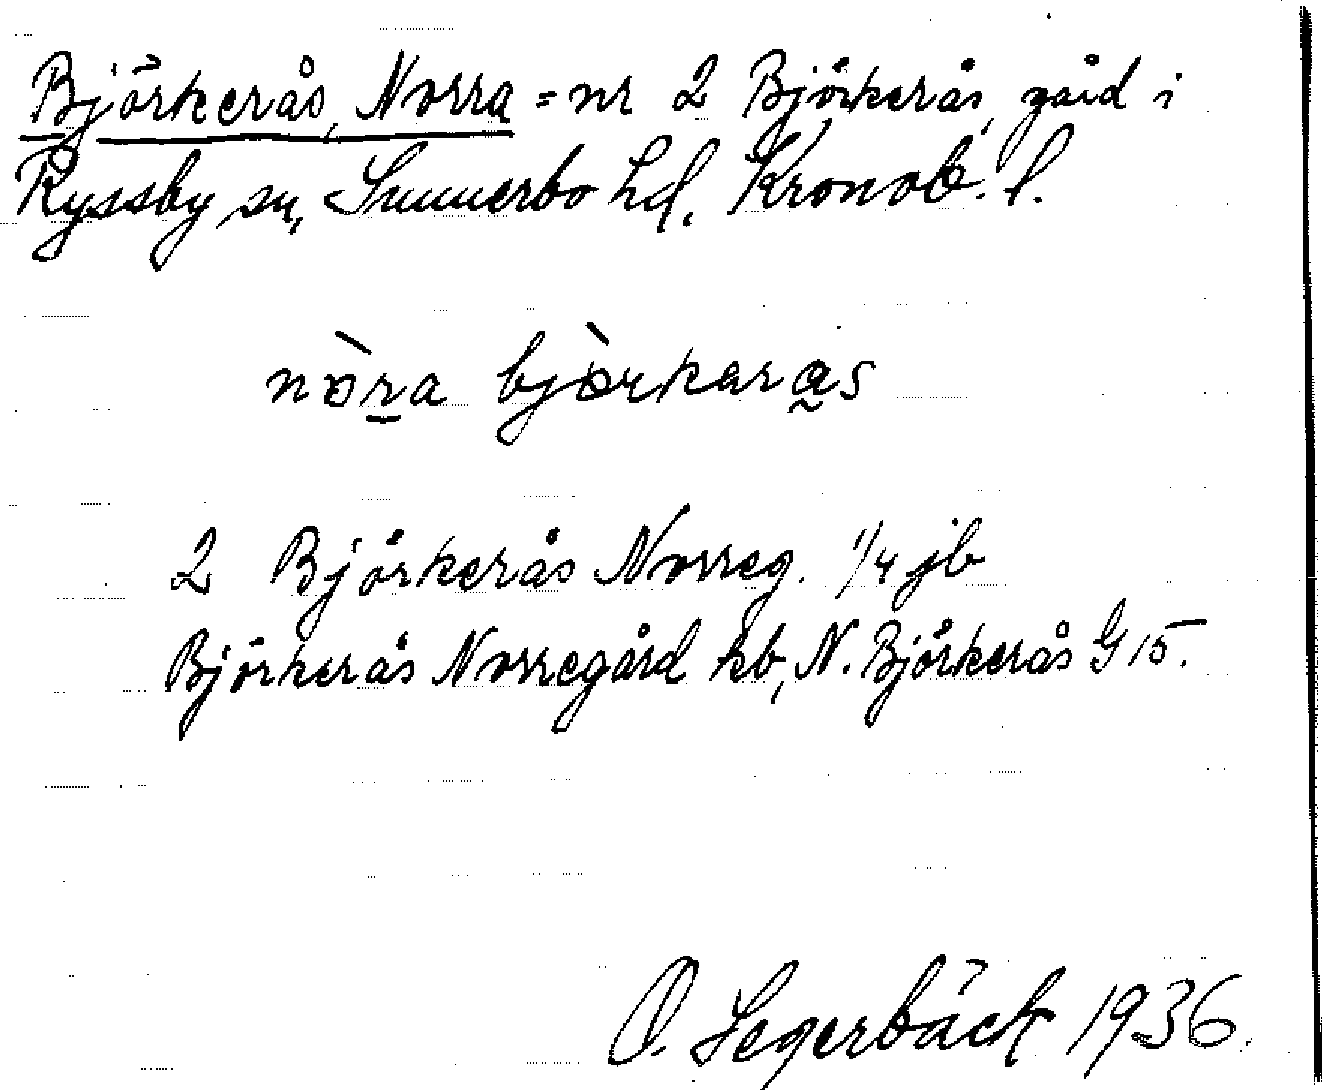 Björkerås, Norra = nr 2 Björkerås, gård i
Ryssby sn, Sunnerbo hd. Kronob. l.
nòra bjòrkaras
2 Björkerås Norreg. 1/4 jb
Björkerås Norregård kb, N. Björkerås G 15.
O. Segerbäck 1936.